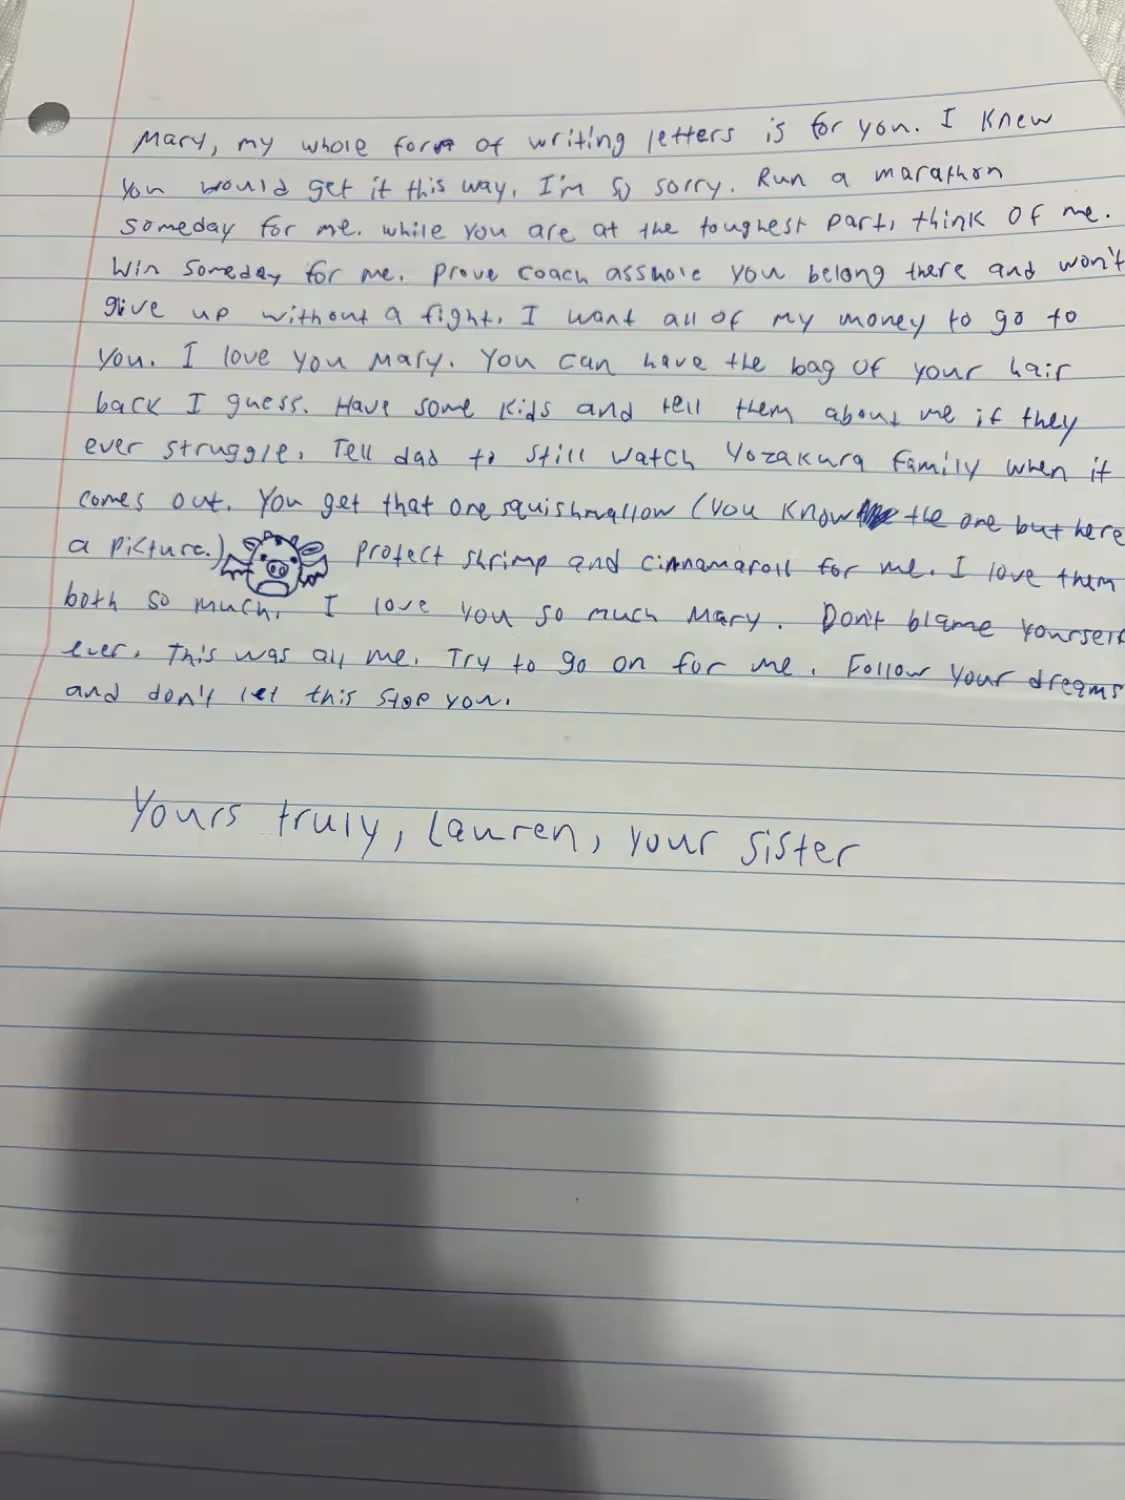 Mary, my whole form of writing letters is for you. I knew
you would get it this way. I'm so sorry. Run a marathon
someday for me. while you are at the toughest part, think of me.
Win someday for me. Prove coach asshole you belong there and won't
give up without a fight. I want all of my money to go to
you. I love you Mary. You can have the bag of your hair
back I guess. Have some kids and tell them about me if they
ever struggle. Tell dad to still watch Yozakura family when it
comes out. You get that one squishmallow (you know the one but here
a picture.) protect shrimp and cinnamaroll for me. I love them
both so much. I love you so much Mary. Don't blame yourself
ever. This was all me. Try to go on for me. Follow your dreams
and don't let this stop you.
Yours truly, Lauren, your sister